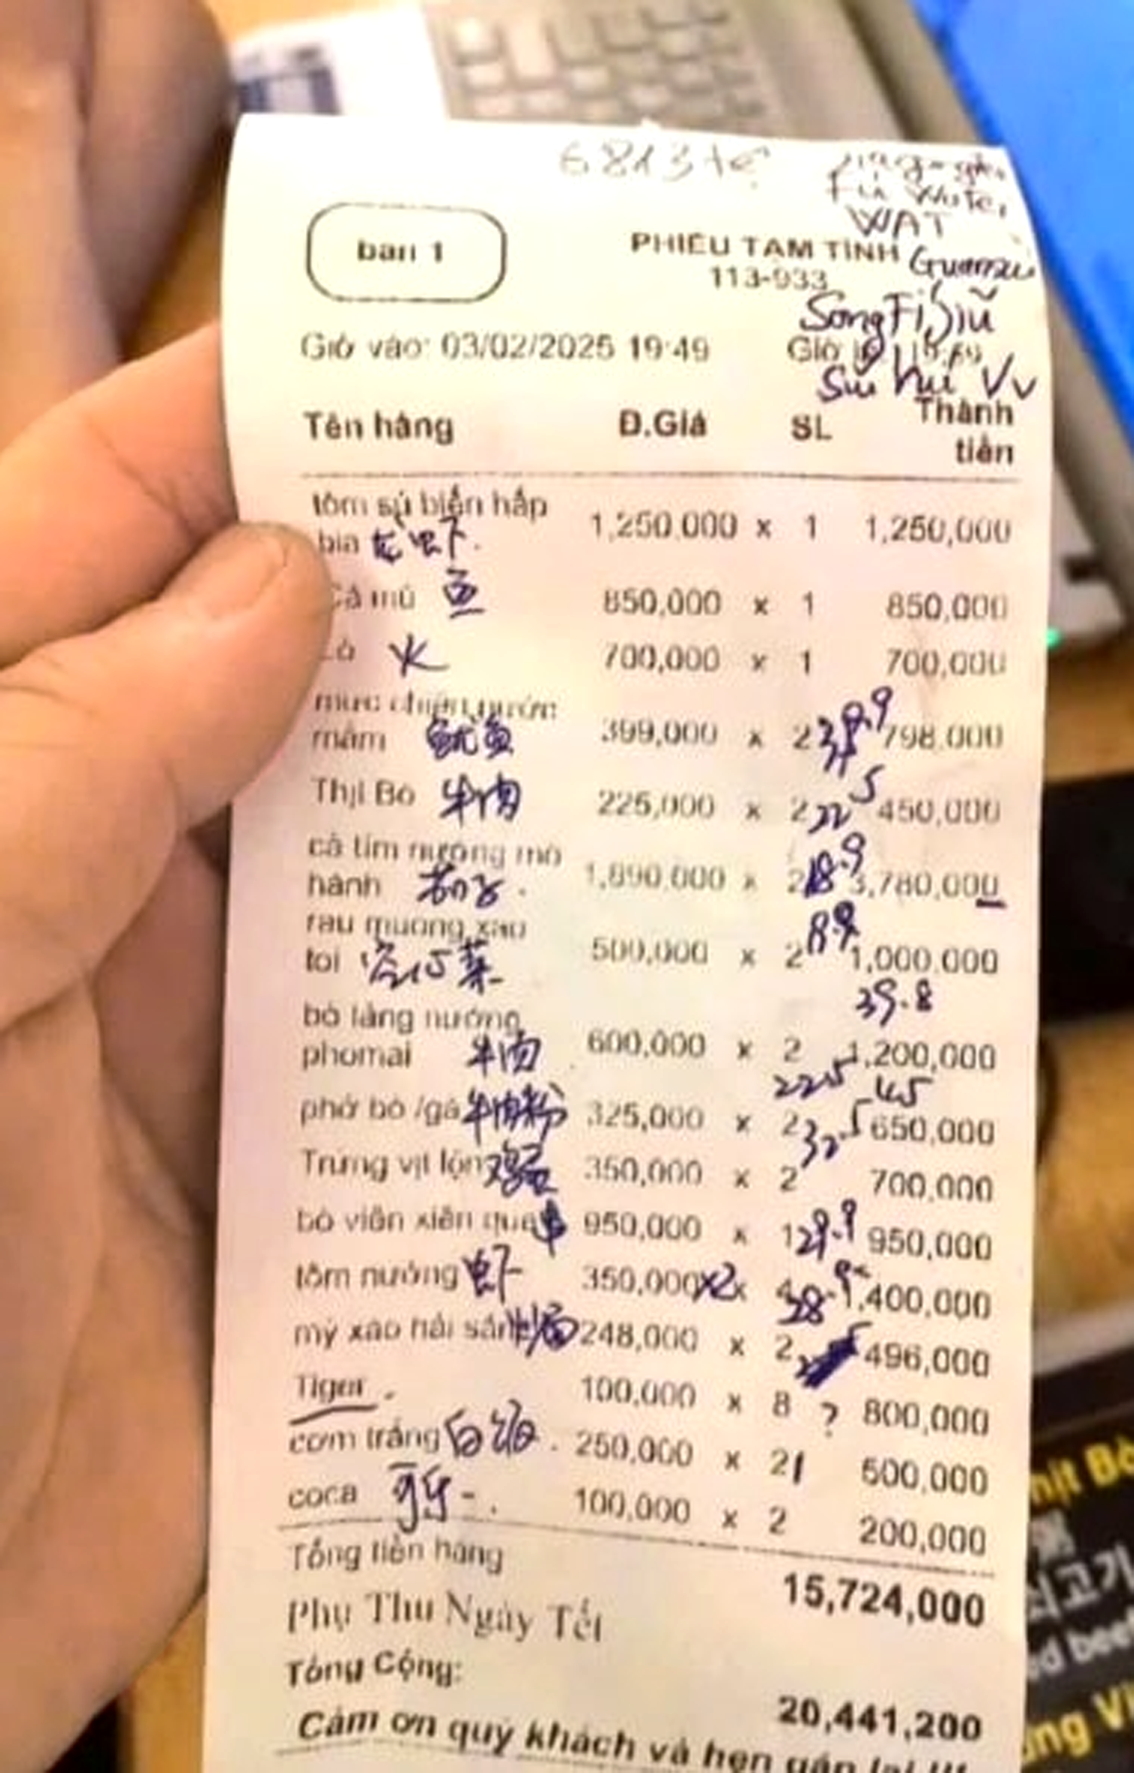 bàn 1
PHIẾU TẠM TÍNH
113-933
WAT
SongFi, Siũ
Giờ vào: 03/02/2025 19:49 Giờ
Tên hàng Đ.Giá SL Thành tiền
tôm sú biển hấp
bia 龙虾. 1,250,000 x 1 1,250,000
Cá mú 鱼 850,000 x 1 850,000
火 700,000 x 1 700,000
mực chiên nước
mắm 鱿鱼 399,000 x 2 39.9 798,000
Thịt Bò 牛肉 225,000 x 2 22.5 450,000
cà tím nướng mỡ
hành 茄子. 1,890,000 x 2 18.9 3,780,000
rau muống xào
tỏi 空心菜 500,000 x 2 1,000,000
39.8
bò tảng nướng
phomai 牛肉 600,000 x 2 1,200,000
225 45
phở bò /gà 牛肉粉 325,000 x 2 32.5 650,000
Trứng vịt lộn 鸡蛋 350,000 x 2 700,000
bò viên xiên que 串 950,000 x 1 950,000
tôm nướng 虾 350,000 x2 x 4 1,400,000
mỳ xào hải sản 248,000 x 2 496,000
Tiger 100,000 x 8 ? 800,000
cơm trắng 白饭. 250,000 x 2 500,000
coca 100,000 x 2 200,000
Tổng tiền hàng 15,724,000
Phụ Thu Ngày Tết
Tổng Cộng: 20,441,200
Cảm ơn quý khách và hẹn gặp lại !!!